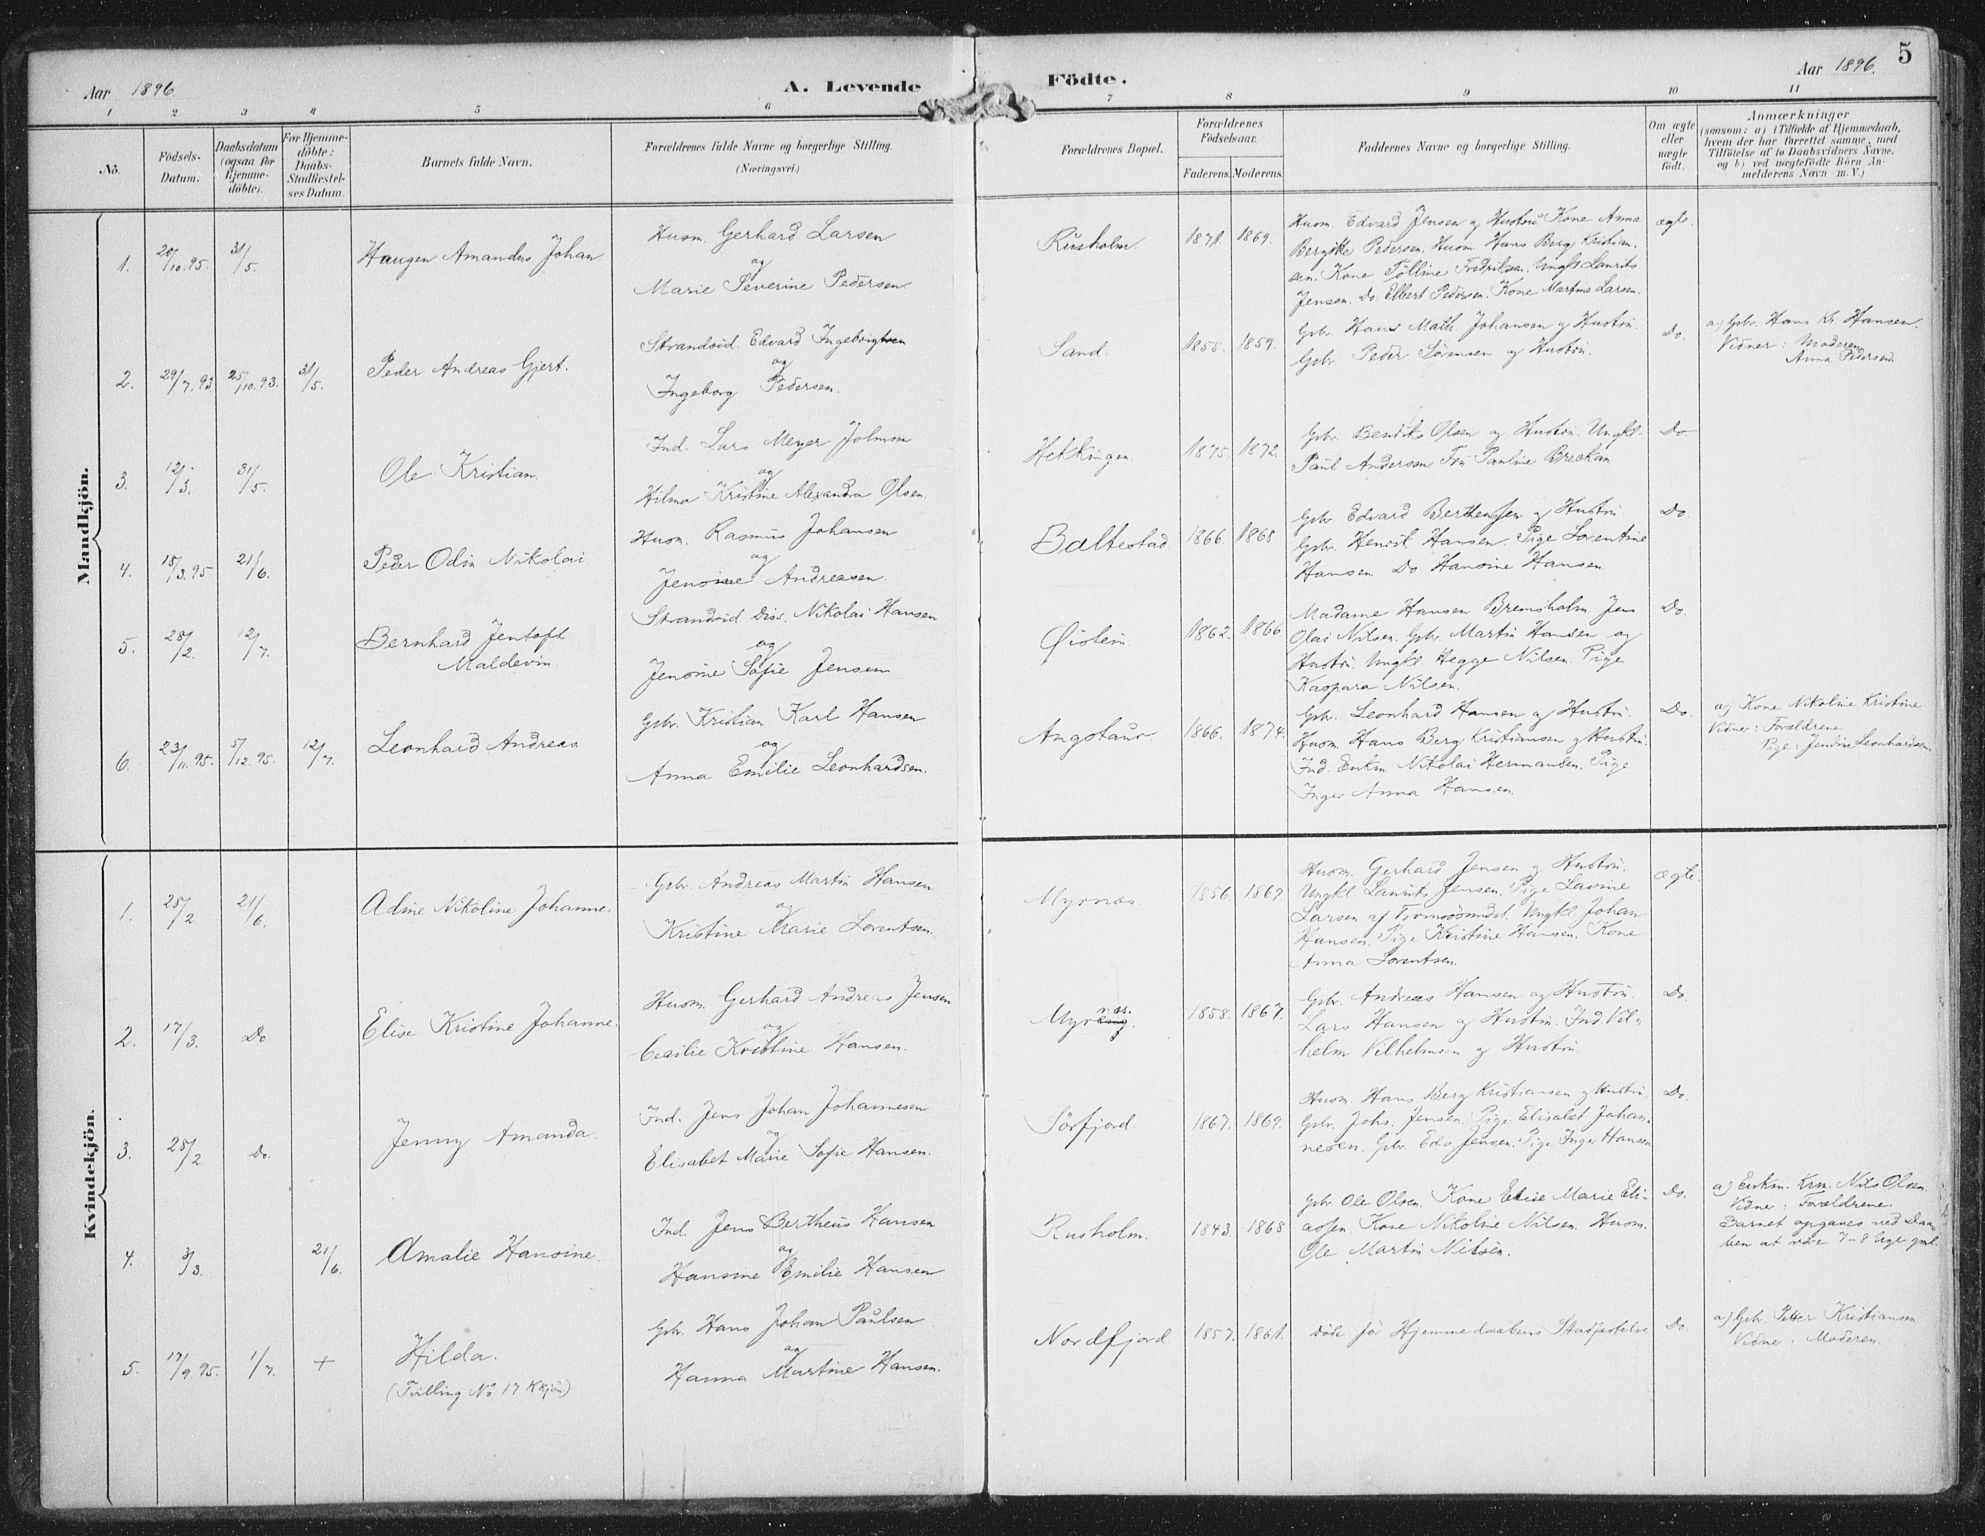 Aar 1896. A. Levende Födte. Aar 1896. 5
1 2 3 4 5 6 7 8 9 10 11
No.
Födsels-
Datum.
Daabsdatum
(ogsaa for
Hjemme-
döbte).
For Hjemme-
döbte:
Daabs-
Stadfæstel-
ses Datum.
Barnets fulde Navn.
Forældrenes fulde Navne og borgerlige Stilling.
(Næringsvei.)
Forældrenes Bopæl.
Forældrenes
Födselsaar.
Faderens. Moderens.
Faddernes Navne og borgerlige Stilling.
Om ægte
eller
uægte
født.
Anmærkninger
(saasom: a) i Tilfælde af Hjemmedaab,
hvem der har forrettet samme, med
Tilföielse af to Daabsvidners Navne.
og b) ved uægtefödte Börn An-
melderens Navn m. V.)
Mandkjön.
1. 20/10.95. 31/5. Haugen Amandus Johan
Husm. Gerhard Larsen
og
Marie Severine Pedersen
Rusholm. 1871. 1869.
Husm. Edvard Jensen og Hustru Kone Anna
Bergitte Pedersen. Husm. Hans Berg Kristian-
sen. Kone Tölline Fredriksen. Ungkl Laurits
Jensen. Do. Elbert Pedersen. Kone Martine Larsen.
ægte.
2. 29/7.93 25/10.93. 31/5. Peder Andreas Gjert.
Strandsid. Edvard Ingebrigtsen
og
Ingeborg Pedersen.
Sand. 1855. 1859.
Gbr. Hans Math. Johansen og Hustru.
Gbr. Peder Sörensen og Hustru.
Do.
a) Gbr. Hans Kr. Hansen.
Vidner: Moderen
Anna Pedersen
3. 12/3. 31/5. Ole Kristian.
Ind. Lars Meyer Johnsen
og
Hilma Kristine Alexandra Olsen.
Hekkingen. 1875. 1872.
Gbr. Bendiks Olsen og Hustru. Ungkl.
Paul Andersen Fru Pauline Breckan
Do.
4. 15/3.95 21/6. Peder Odin Nikolai
Husm. Rasmus Johansen
og
Jensine Andreasen.
Baltestad. 1866. 1868
Gbr. Edvard Berthensen og Hustru
Gbr. Henrik Hansen. Pige Lorentine
Hansen Do Hansine Hansen.
Do.
5. 28/2. 12/7. Bernhard Jentoft
Maldevin
Strandsid Nikolai Hansen
og
Jensine Sofie Jensen
Øistein 1862. 1866
Madame Hansen Bremsholm Jens
Olai Nilsen. Gbr. Martin Hansen og
Hustru. Ungkl. Hegge Nilsen. Pige
Kaspara Nilsen.
Do.
6. 23/11.95. 5/12.95. 12/7. Leonhard Andreas
Gbr. Kristian Karl Hansen
og
Anna Emilie Leonhardsen.
Angstaur 1866. 1874.
Gbr. Leonhard Hansen og Hustru.
Husm. Hans Berg Kristiansen og Hustru.
Ind. Enkm Nikolai Hermansen. Pige
Inger Anna Hansen.
Do.
a) Kone Nikoline Kristine
Vidner: Forældrene
Pige: Jendine Leonhardsen
Kvindekjön.
1. 25/2 21/6. Adine Nikoline Johanne.
Gbr. Andreas Martin Hansen
og
Kristine Marie Lorentsen.
Myrnæs. 1856. 1867
Husm. Gerhard Jensen og Hustru.
Ungkl. Laurits Jensen. Pige Lavine
Larsen af Tromsösundet. Ungkl. Johan
Hansen. Pige Kristine Hansen. Kone
Anna Lorentsen.
ægte.
2. 17/3. Do Elise Kristine Johanne.
Husm. Gerhard Andreas Jensen
og
Cecilie Kristine Hansen.
Myrnæs. 1858. 1867.
Gbr. Andreas Hansen og Hustru.
Lars Hansen og Hustru. Ind. Vil-
helm Vilhelmsen og Hustru
Do.
3. 28/2 Do. Jenny Amanda.
Ind. Jens Johan Johannesen
og
Elisabet Marie Sofie Hansen.
Sörfjord. 1867. 1869.
Husm. Hans Berg Kristiansen og Hustru
Gbr. Johs. Jensen. Pige Elisabet Johan-
nesen. Gbr. Edv Jensen. Pige Inger Hansen
Do.
4. 3/3. 21/6. Amalie Hansine.
Ind. Jens Bertheus Hansen
og
Hansine Emilie Hansen
Rusholm. 1843. 1868
Gbr Ole Olsen. Kone Elise Marie Eli-
assen. Kone Nikoline Nilsen. Husm.
Ole Martin Nilsen.
Do.
a) Enkm. Krn. Nils Olsen.
Vidner: Forældrene.
Barnet opgaves ved Daa-
ben at være 7-8 Uger gml.
5. 17/9.95. 1/7. + Hilda.
(Tvilling No 17 Kkjön)
Gbr. Hans Johan Paulsen
og
Hanna Martine Hansen.
Nordfjord 1857. 1861.
döde för Hjemmedaabens Stadfæstelse
Do.
a) Gbr. Petter Kristiansen
Vidne: Moderen.